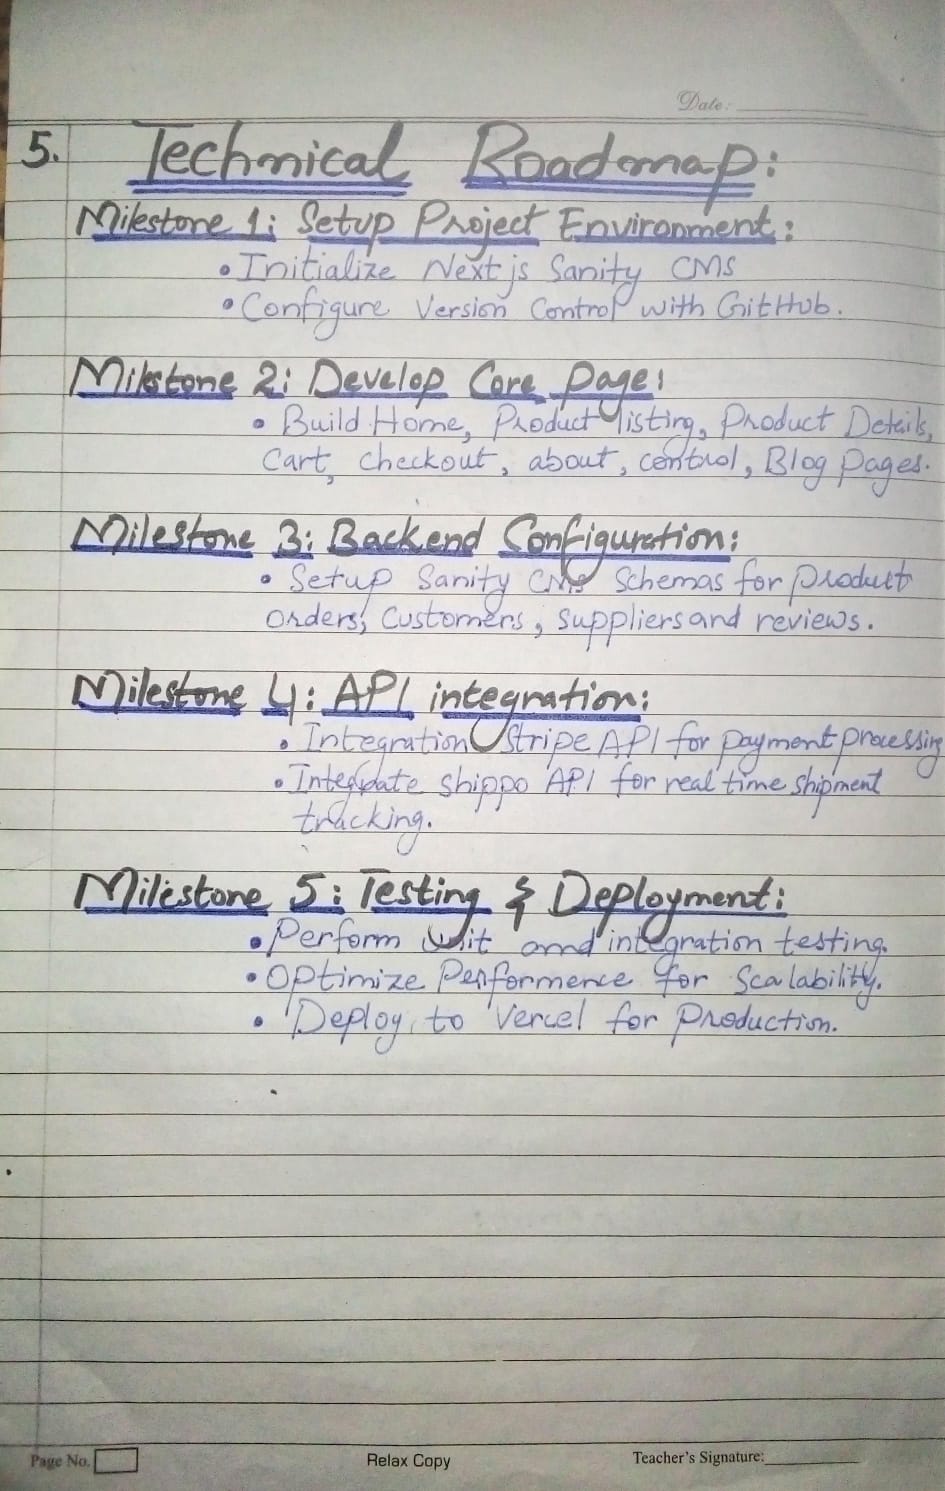 Date:
5. Technical Roadmap:
Milestone 1: Setup Project Environment:
• Initialize Next js Sanity CMS
• Configure Version Control with GitHub.
Milestone 2: Develop Core page:
• Build Home, Product listing, Product Details,
Cart, checkout, about, control, Blog pages.
Milestone 3: Backend Configuration:
• Setup Sanity CMS Schemas for product
orders, Customers, suppliers and reviews.
Milestone 4: API integration:
• Integration Stripe API for payment processing
• Integrate shippo API for real time shipment
tracking.
Milestone 5: Testing & Deployment:
• Perform Unit and integration testing.
• Optimize Performence for Scalability.
• Deploy to Vercel for Production.
Page No. Relax Copy Teacher's Signature: